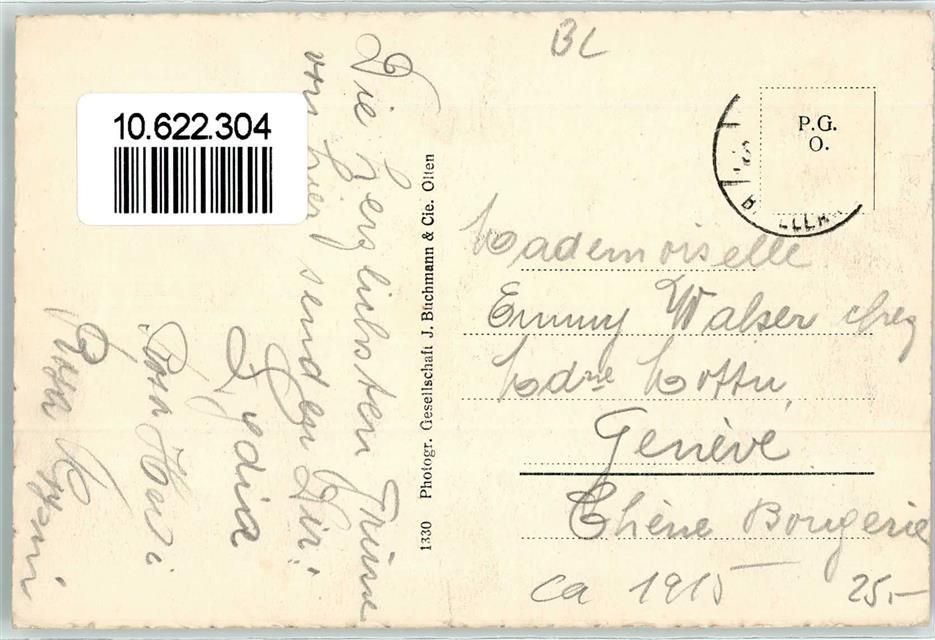 BL
10.622.304
P.G.
O.
Die herzlichsten Grüsse
von hier senden Dir:
Lydia
Rosa
1330 Photogr. Gesellschaft J. Buchmann & Cie. Olten
Mademoiselle
Emmy Walser chez
Mdme
Genève
Chène Bougerie
ca 1915
25.-